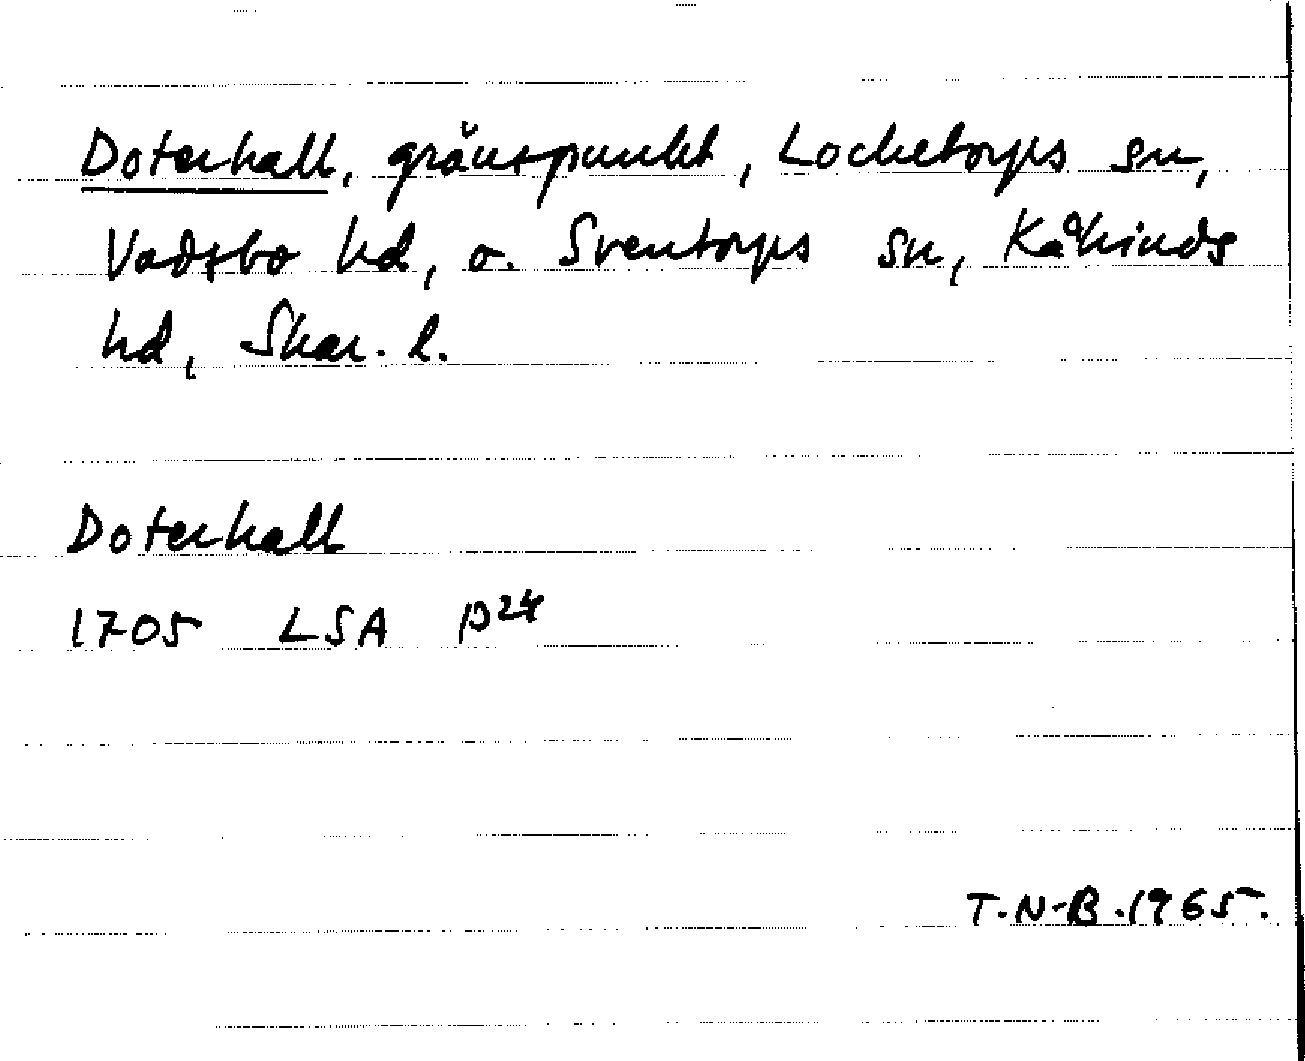 Doterhall, gränspunkt, Locketorps sn,
Vadsbo hd, o. Sventorps sn, Kåkinds
hd, Skar. l.
Doterhall
1705 LSA P24
T.N-B.1965.